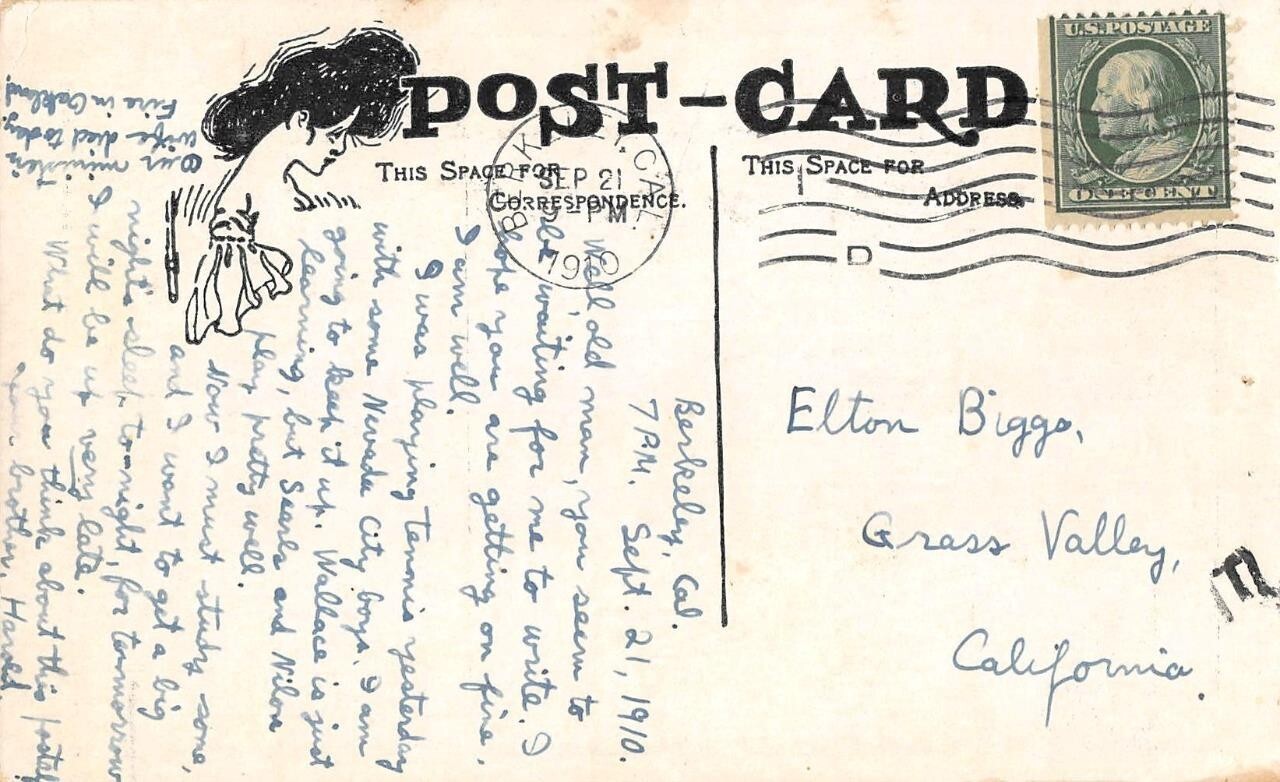 POST-CARD
THIS SPACE FOR
CORRESPONDENCE.
THIS SPACE FOR
ADDRESS.
U.S. POSTAGE
ONE CENT
SEP 21
9-PM
1910
CAL.
D
Berkeley, Cal.
7 P.M. Sept. 21, 1910.
Well old man, you seem to
be waiting for me to write. I
hope you are getting on fine,
I am well.
I was playing tennis yesterday
with some Nevada City boys. I am
going to keep it up. Wallace is just
learning, but Searls and
play pretty well.
Now I must study some,
and I want to get a big
night's sleep tonight, for tomorrow
I will be up very late.
What do you think about this postal
your brother, Harold.
Our minister's
wife died today.
Fire in Oakland.
Elton Biggs,
Grass Valley,
California.